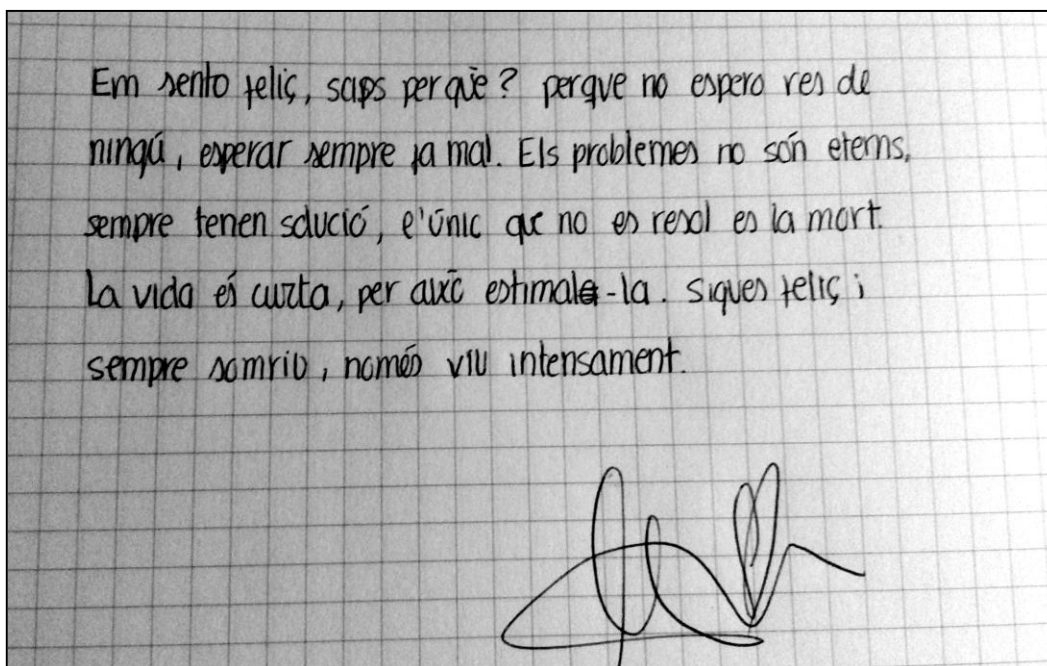 Em sento feliç, saps per què? perque no espero res de
ningú, esperar sempre fa mal. Els problemes no són eterns,
sempre tenen solució, l'únic que no es resol es la mort.
La vida és curta, per aixó estimala-la. Sigues feliç i
sempre somriu, només viu intensament.